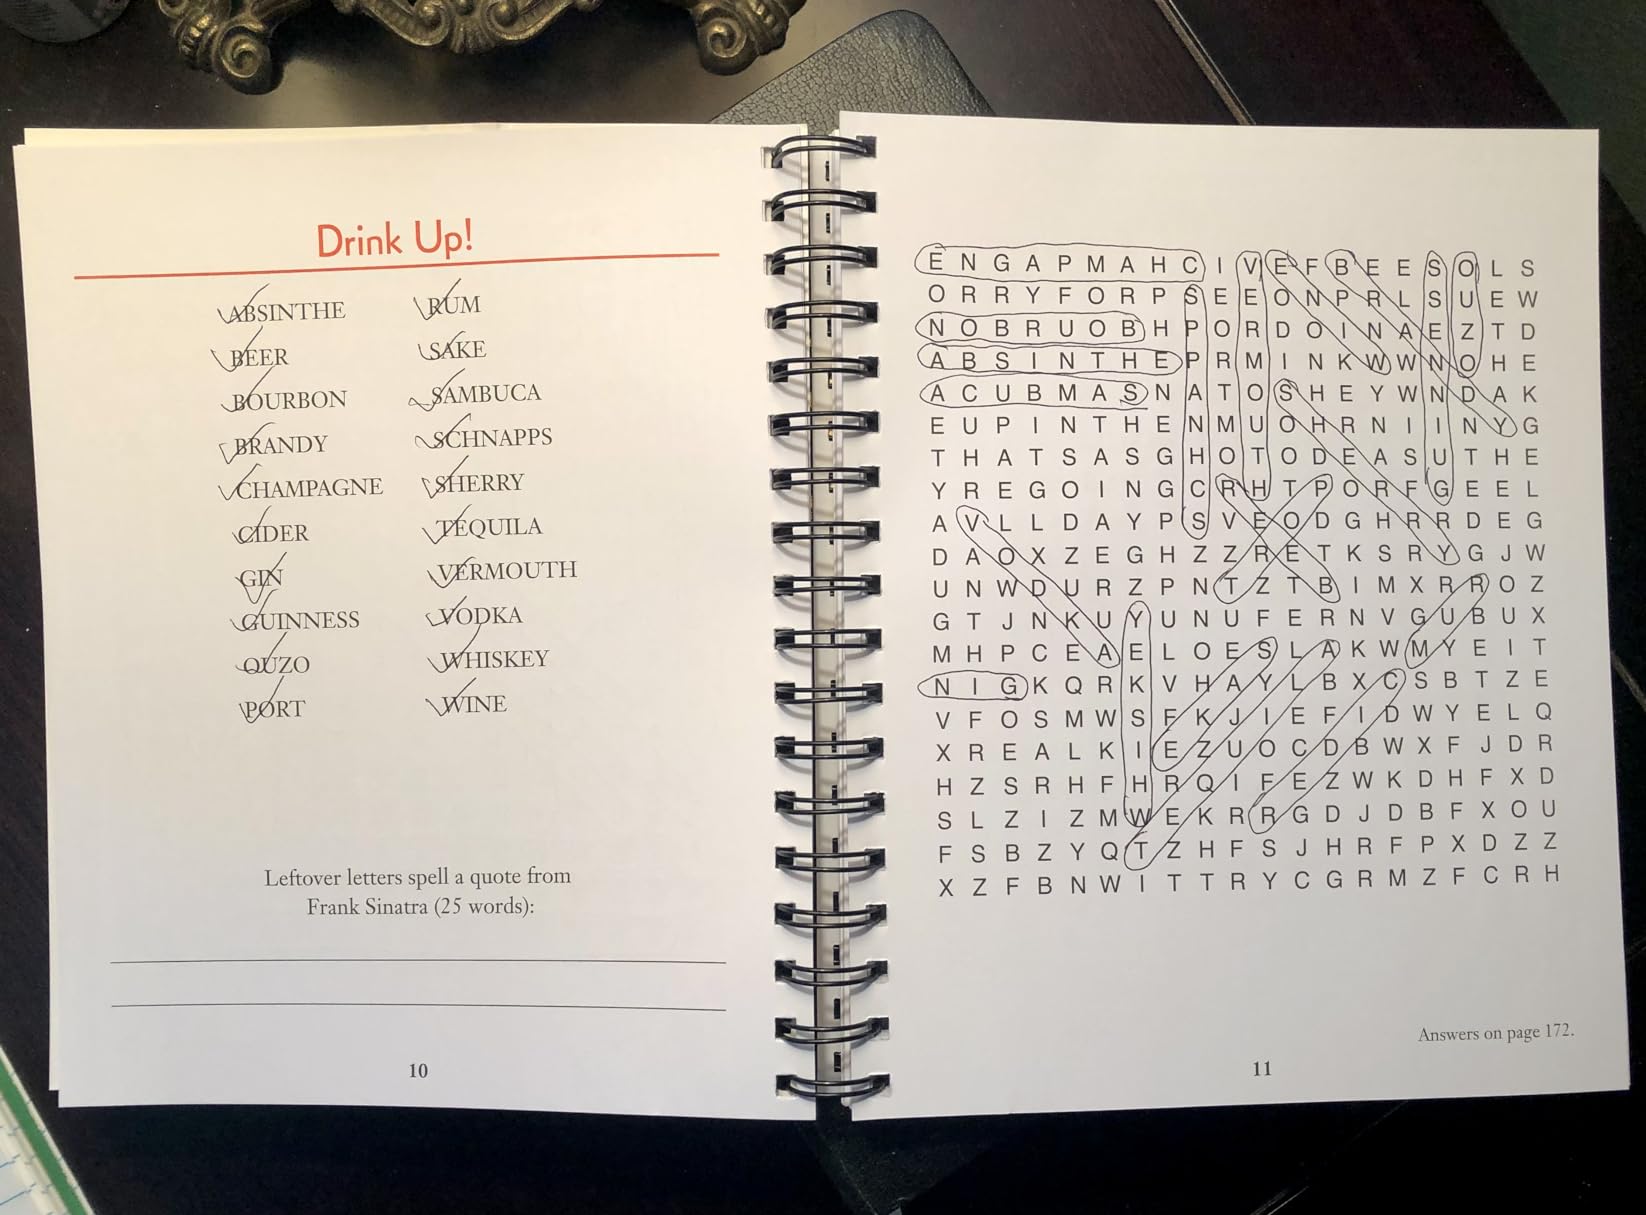 Drink Up!
ABSINTHE
BEER
BOURBON
BRANDY
CHAMPAGNE
CIDER
GIN
GUINNESS
OUZO
PORT
RUM
SAKE
SAMBUCA
SCHNAPPS
SHERRY
TEQUILA
VERMOUTH
VODKA
WHISKEY
WINE
Leftover letters spell a quote from
Frank Sinatra (25 words):
10
E N G A P M A H C I V E F B E E S O L S
O R R Y F O R P S E E O N P R L S U E W
N O B R U O B H P O R D O I N A E Z T D
A B S I N T H E P R M I N K W W N O H E
A C U B M A S N A T O S H E Y W N D A K
E U P I N T H E N M U O H R N I I N Y G
T H A T S A S G H O T O D E A S U T H E
Y R E G O I N G C R H T P O R F G E E L
A V L L D A Y P S V E O D G H R R D E G
D A O X Z E G H Z Z R E T K S R Y G J W
U N W D U R Z P N T Z T B I M X R R O Z
G T J N K U Y U N U F E R N V G U B U X
M H P C E A E L O E S L A K W M Y E I T
N I G K Q R K V H A Y L B X C S B T Z E
V F O S M W S F K J I E F I D W Y E L Q
X R E A L K I E Z U O C D B W X F J D R
H Z S R H F H R Q I F E Z W K D H F X D
S L Z I Z M W E K R R G D J D B F X O U
F S B Z Y Q T Z H F S J H R F P X D Z Z
X Z F B N W I T T R Y C G R M Z F C R H
Answers on page 172.
11